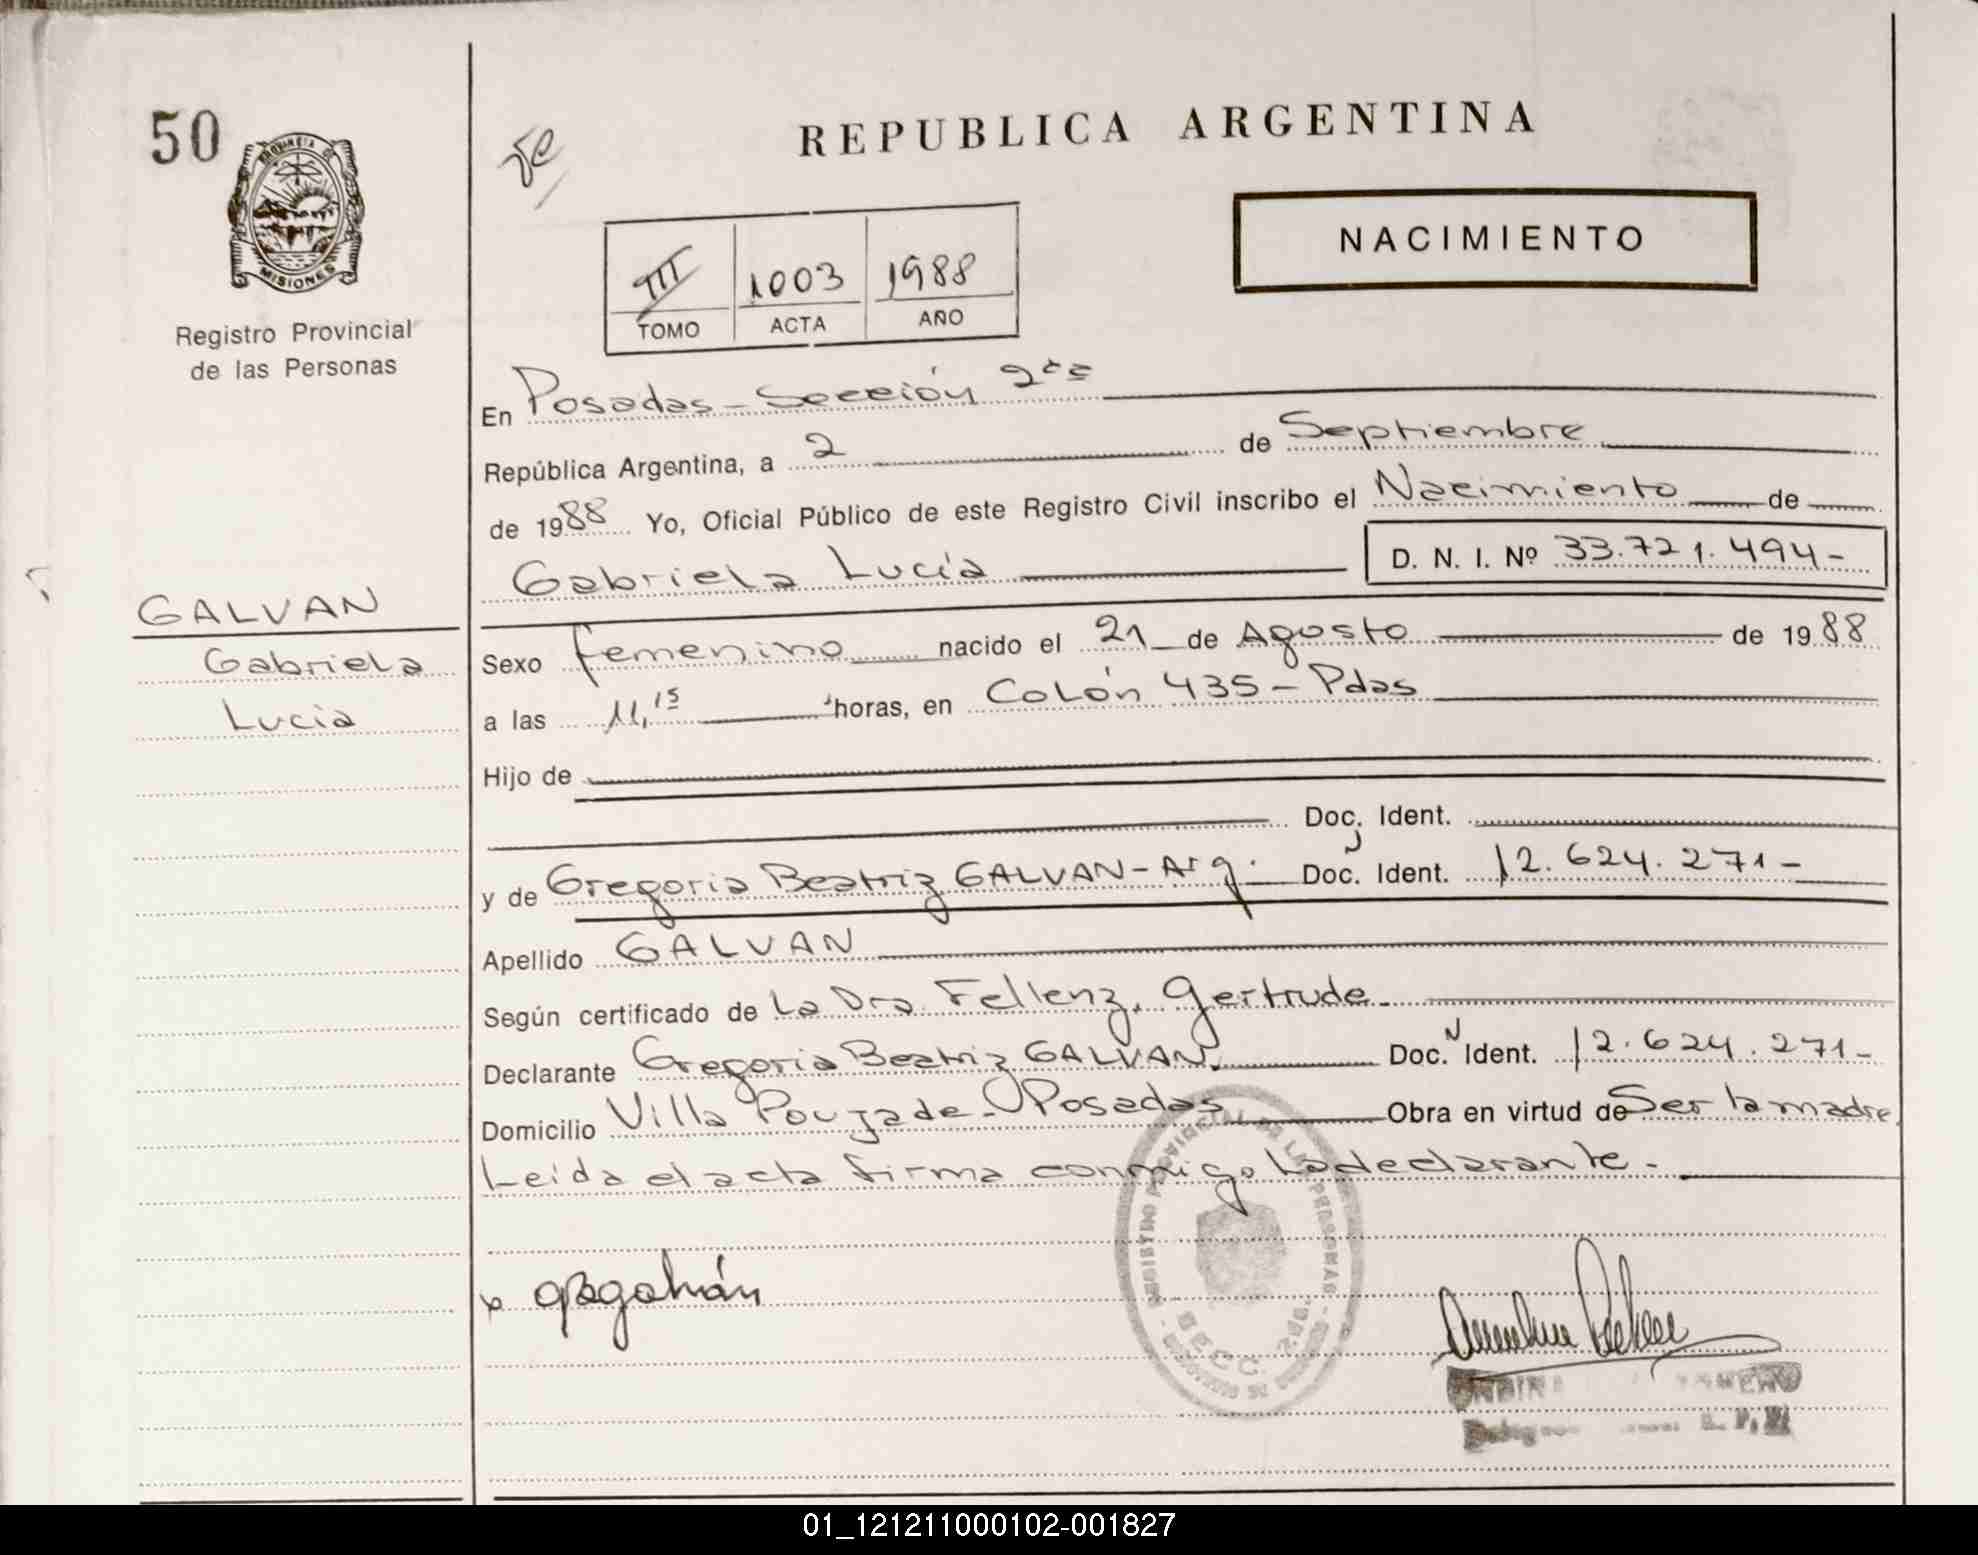 50
PROVINCIA DE
MISIONES
Registro Provincial
de las Personas
REPUBLICA ARGENTINA
NACIMIENTO
III 1003 1988
TOMO ACTA AÑO
En Posadas - Sección 2da
República Argentina, a 2 de Septiembre
de 1988 Yo, Oficial Público de este Registro Civil inscribo el Nacimiento de
Gabriela Lucía D. N. I. Nº 33.721.494-
GALVAN
Gabriela
Lucia
Sexo femenino nacido el 21 de Agosto de 1988
a las 11,15 horas, en Colón 435 - Pdas
Hijo de
Doc. Ident.
y de Gregoria Beatriz GALVAN - Arg. Doc. Ident. 12.624.271-
Apellido GALVAN
Según certificado de La Dra. Fellenz, Gertrude.
Declarante Gregoria Beatriz GALVAN. Doc. Ident. 12.624.271-
Domicilio Villa Poujade - Posadas Obra en virtud de Ser la madre.
Leída el acta firma conmigo la declarante.-
REGISTRO PROVINCIAL DE LAS PERSONAS
SECC. 2da.
x
R. P.
01_121211000102-001827